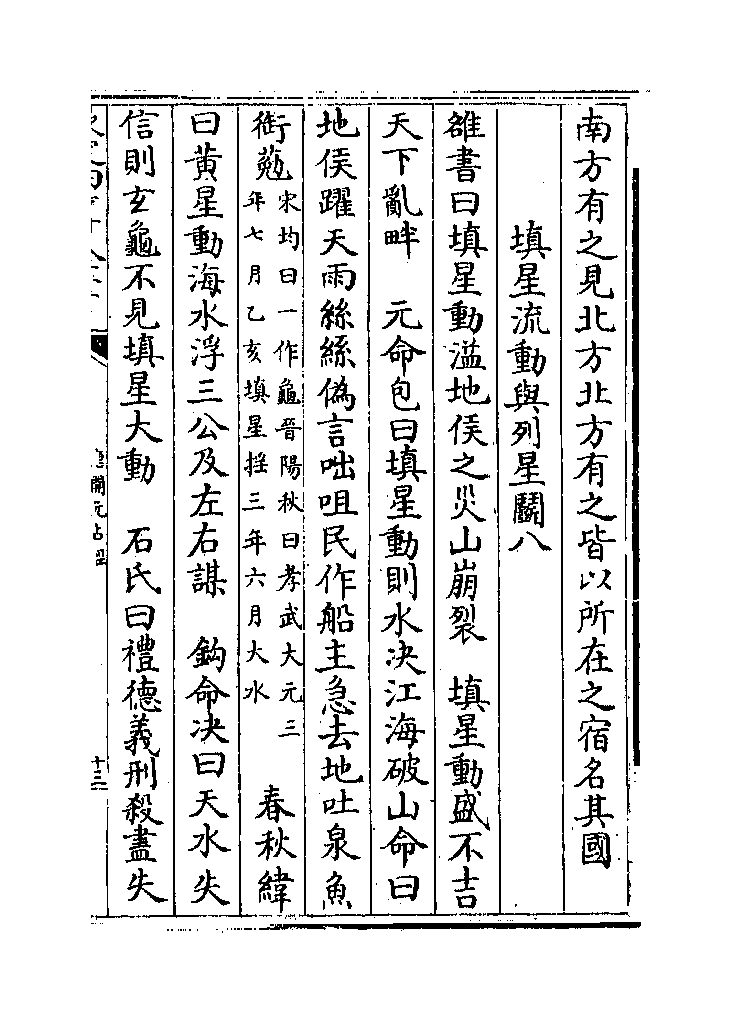 南方有之見北方北方有之皆以所在之宿名其國
填星流動與列星鬬八
雒書曰填星動溢地侯之災山崩裂　填星動盛不吉
天下亂畔　元命包曰填星動則水决江海破山命曰
地侯躍天雨絲絲偽言咄咀民作船主急去地吐泉魚
銜𪚰宋均曰一作龜晉陽秋曰孝武大元三年七月乙亥填星揺三年六月大水　春秋緯
曰黄星動海水浮三公及左右謀　鈎命决曰天水失
信則玄龜不見填星大動　石氏曰禮德義刑殺盡失
唐開元占經
十三